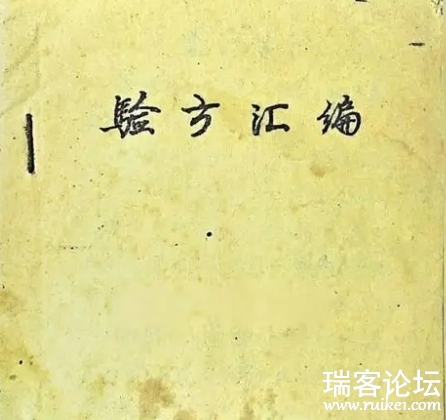 验方汇编
瑞客论坛
www.ruike1.com